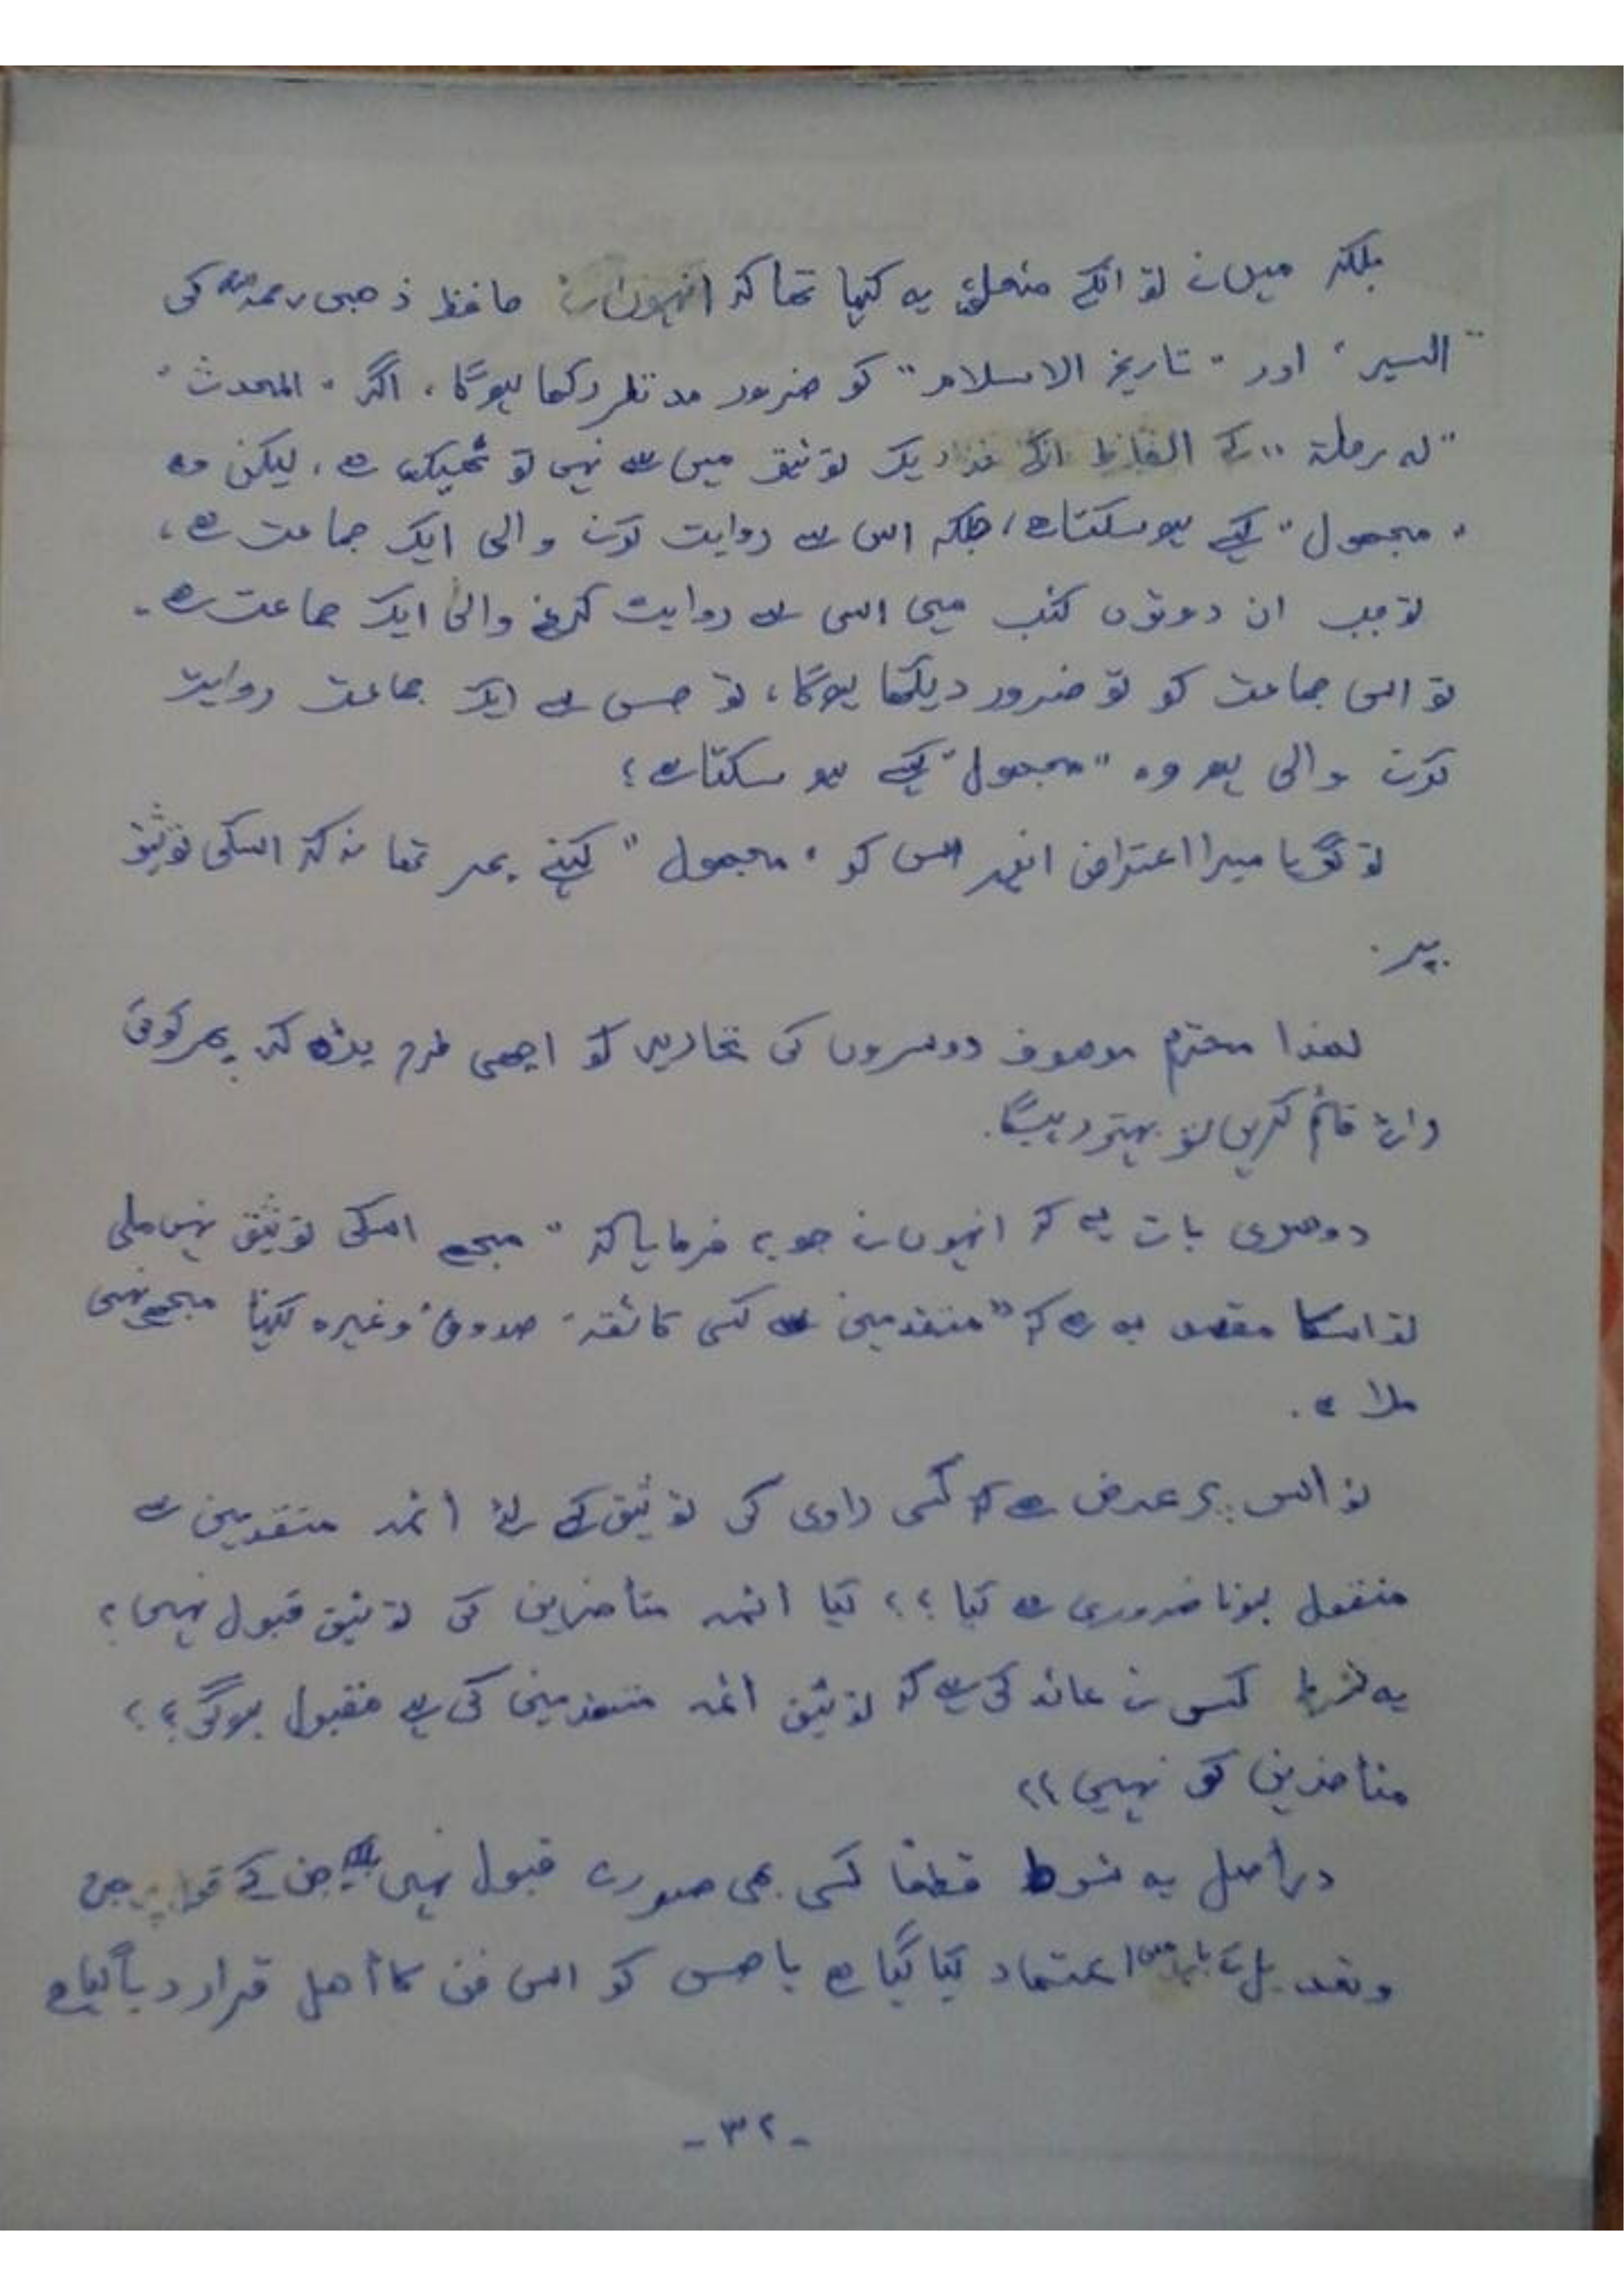 بلکہ میں نے تو انکے متعلق یہ کہا تھا کہ انہوں نے حافظ ذھبی رحمہ اللہ کی
"السیر" اور "تاریخ الاسلام" کو ضرور مد نظر رکھا ہوگا، اگر "المحدث"
"لہ رحلۃ" کے الفاظ انکے نزدیک توثیق میں سے نہیں تو ٹھیک ہے، لیکن وہ
"مجھول" کیسے ہو سکتا ہے، جبکہ اس سے روایت کرنے والی ایک جماعت ہے،
تو جب ان دونوں کتب میں اس سے روایت کرنے والی ایک جماعت ہے۔
تو اس جماعت کو تو ضرور دیکھا ہوگا، تو جس سے ایک جماعت روایت
کرنے والی ہو وہ "مجھول" کیسے ہو سکتا ہے؟
تو گویا میرا اعتراض انہیں اس کو "مجھول" کہنے پر تھا نہ کہ اسکی توثیق
پر۔
لھذا محترم موصوف دوسروں کی تحاریر کو اچھی طرح پڑھ کر پھر کوئی
رائے قائم کریں تو بہتر رہیگا۔
دوسری بات یہ کہ انہوں نے جو یہ فرمایا کہ "مجھے اسکی توثیق نہیں ملی
تو اسکا مقصد یہ ہے کہ "متقدمین سے کسی کا ثقہ، صدوق وغیرہ کہنا مجھے نہیں
ملا ہے۔
تو اس پر عرض ہے کہ کسی راوی کی توثیق کے لئے ائمہ متقدمین سے
منقول ہونا ضروری ہے کیا؟؟ کیا ائمہ متأخرین کی توثیق قبول نہیں؟
یہ شرط کس نے عائد کی ہے کہ توثیق ائمہ متقدمین کی ہی مقبول ہوگی؟؟
متأخرین کی نہیں؟؟
دراصل یہ شرط قطعا کسی بھی صورت قبول نہیں جن کے جرح
وتعدیل کے اعتماد کیا گیا ہے یا جس کو اس فن کا أھل قرار دیا گیا ہے
-۳۲-